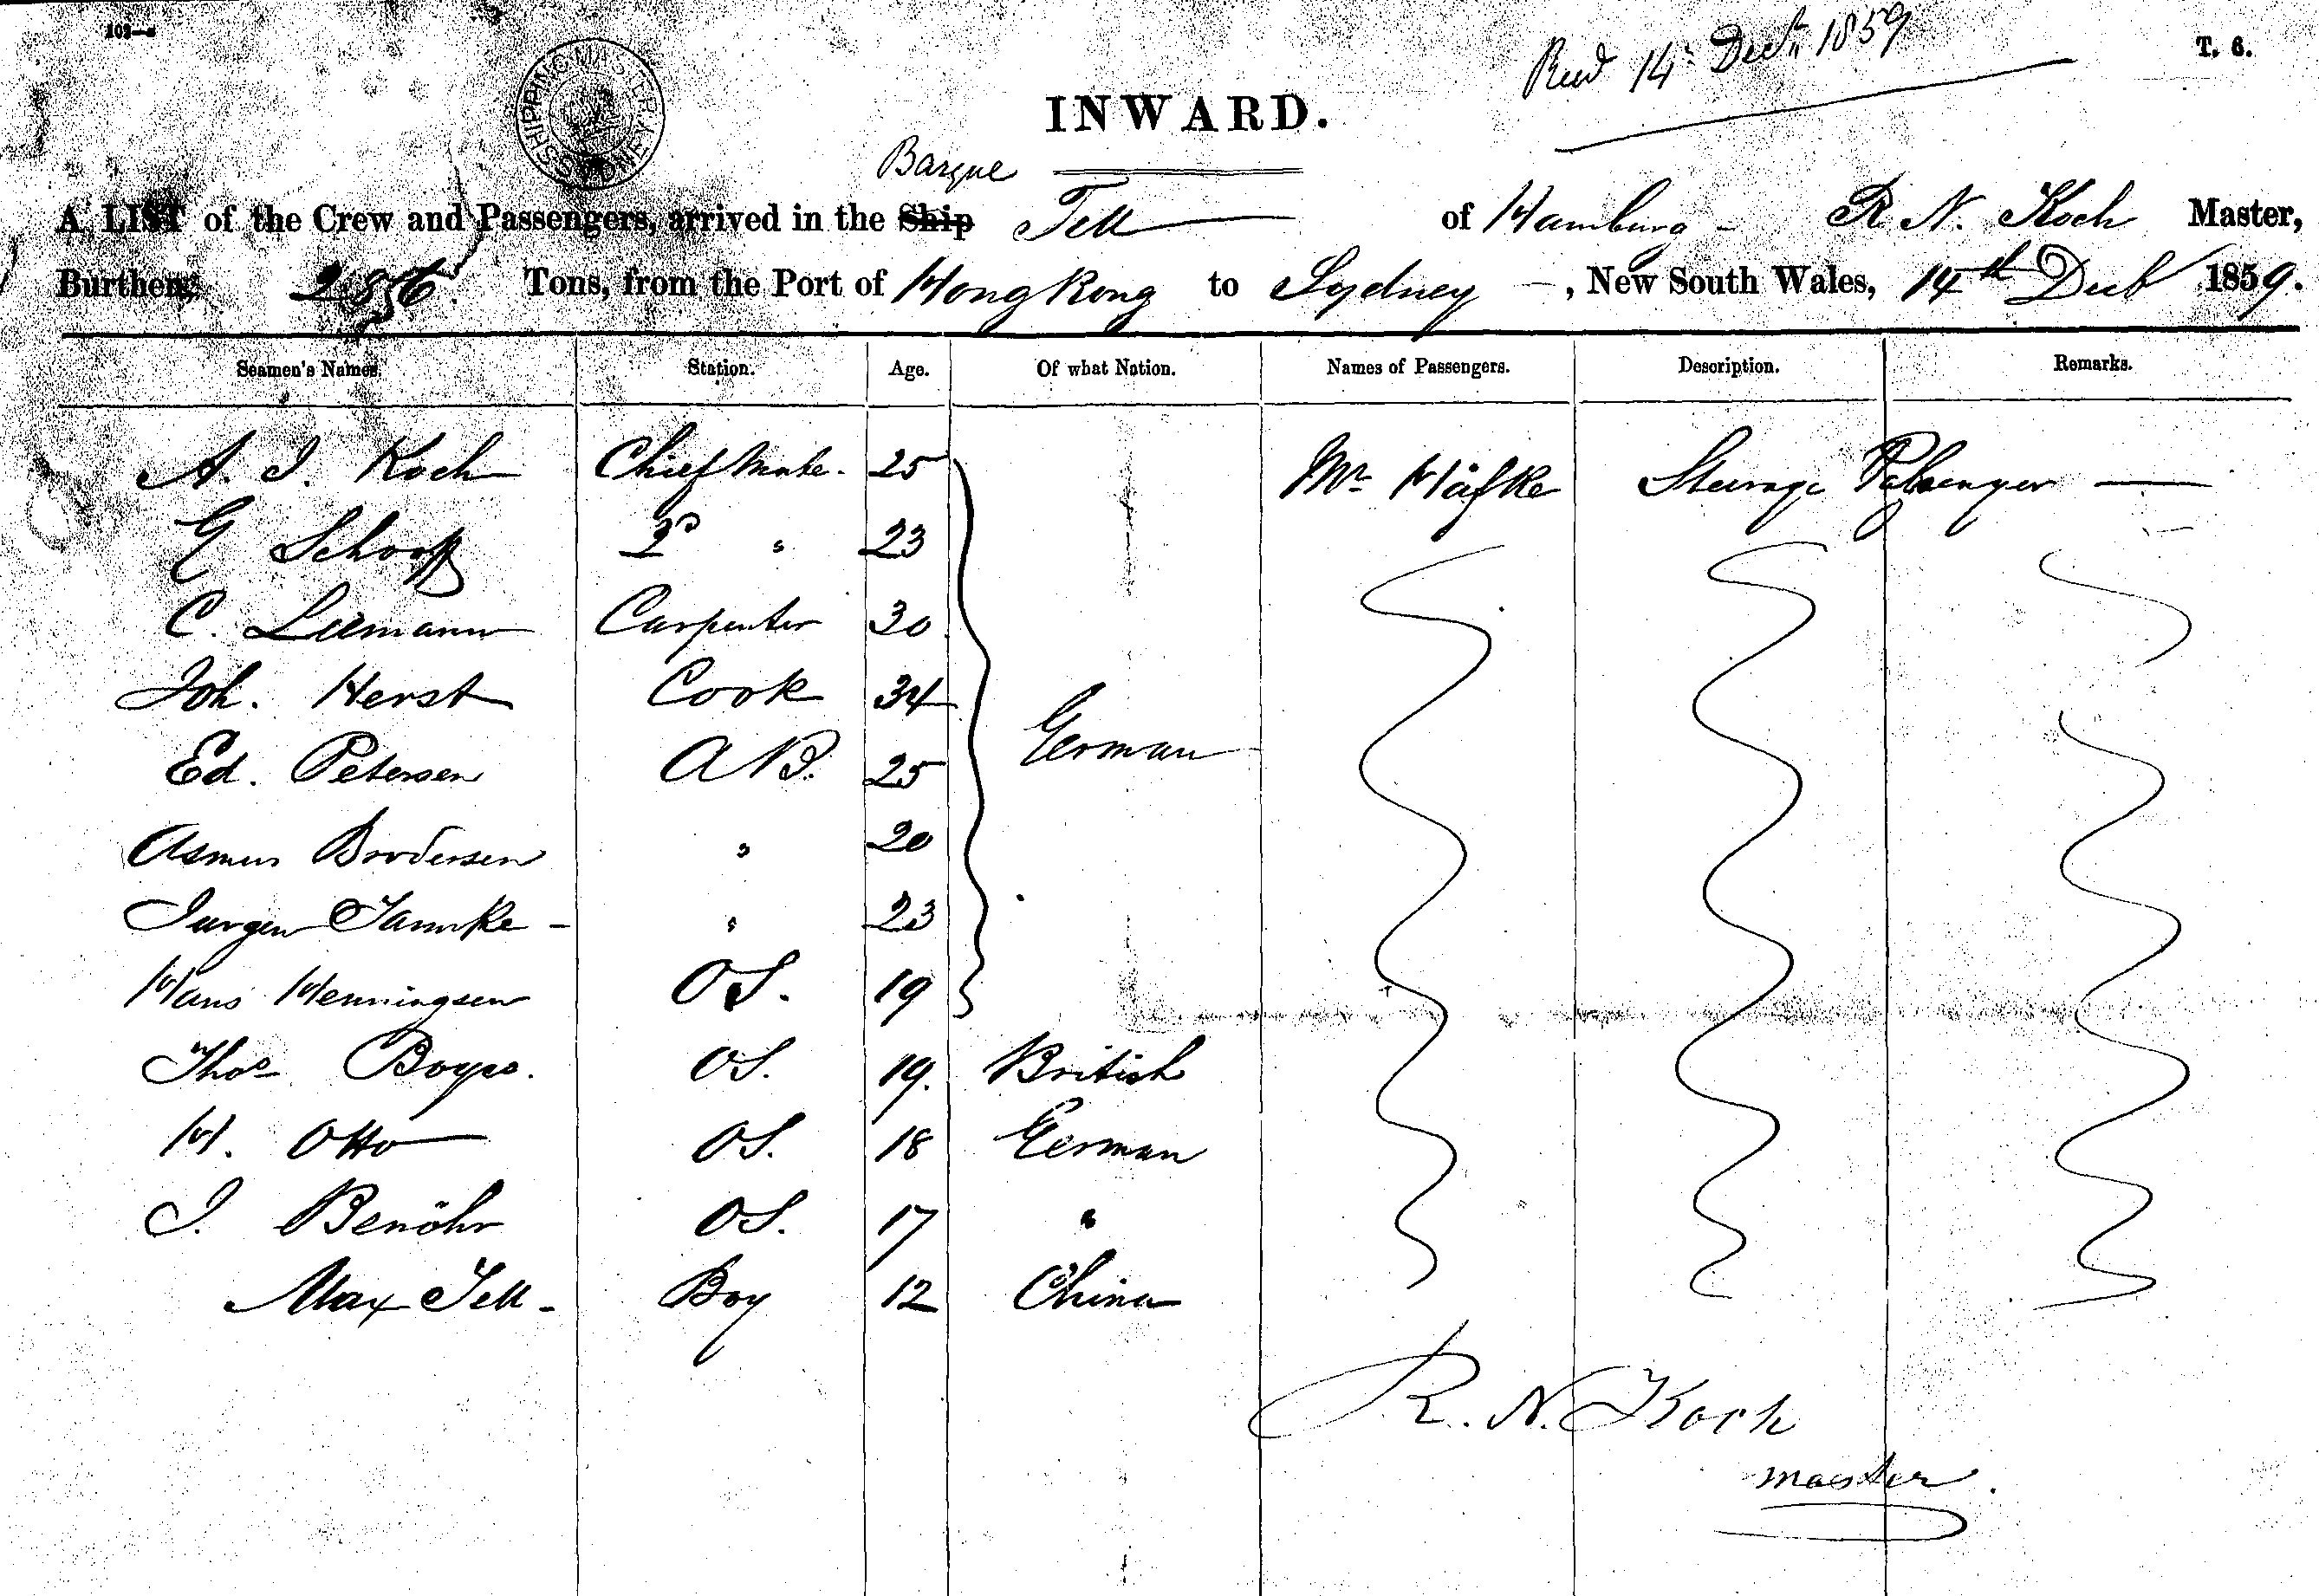 103—a
Recd 14th Decr 1859
T. 6.
SHIPPING MASTER SYDNEY
INWARD.
Barque
A LIST of the Crew and Passengers, arrived in the Ship Tell of Hamburg - R. N. Koch Master,
Burthen, Tons, from the Port of Hong Kong to Sydney —, New South Wales, 14th Decb 1859.
Seamen's Names. Station. Age. Of what Nation. Names of Passengers. Description. Remarks.
A. J. Koch Chief Mate. 25 Mr. Häfke Steerage Passenger —
G Schooff 2D " 23
C. Liemann Carpenter 30
Joh. Herst Cook 34
Ed. Petersen A B. 25 German
Asmus Brodersen " 20
Jurgen Jannke - " 23
Hans Henningsen OS. 19
Thos Boyes. OS. 19. British
H. Otto OS. 18 German
J. Benöhr OS. 17 "
Max Tell - Boy 12 China
R. N. Koch
master.